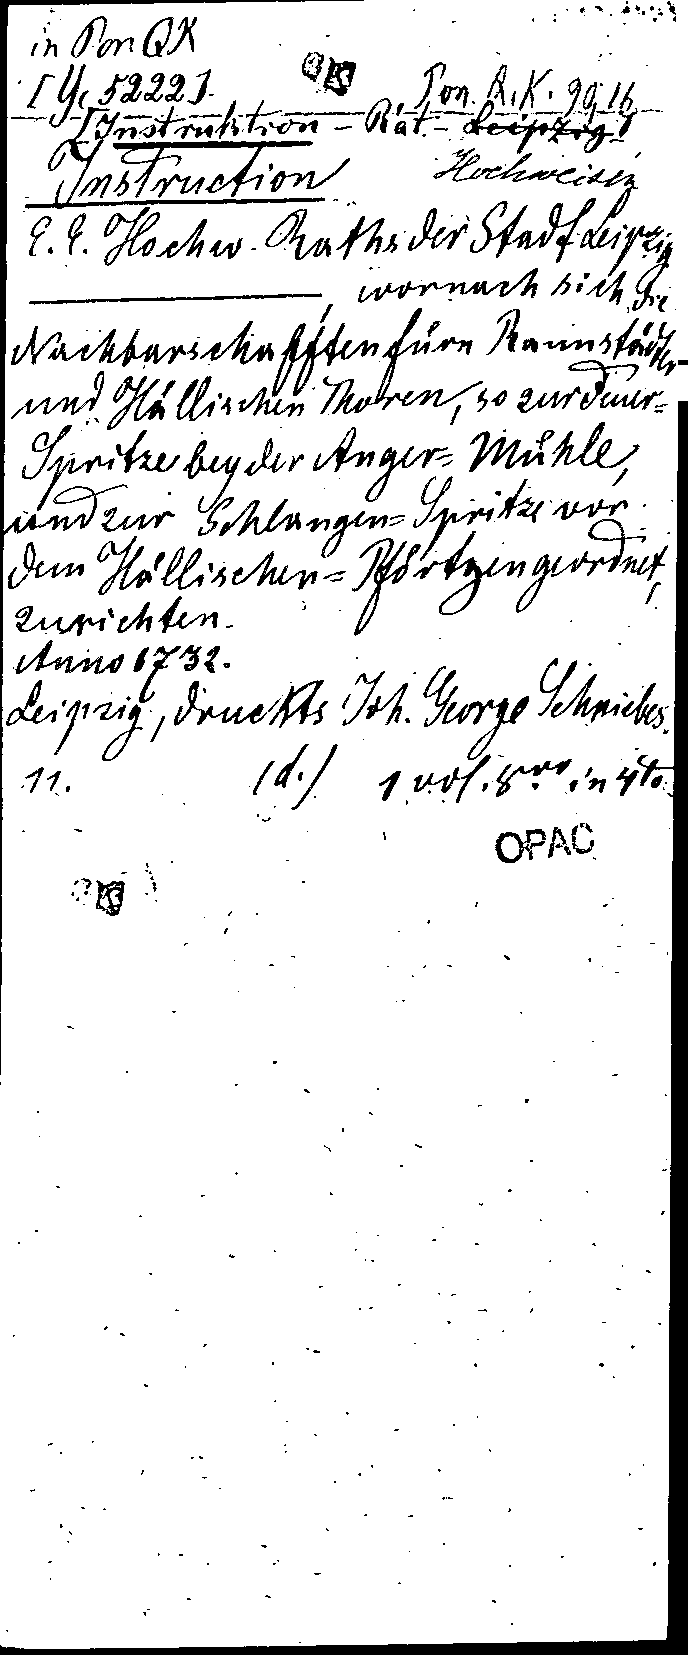 in Pon QK
[Yc 5222].
Pon. Q.K. 99, 16
[Instruktion - Rat. - Leipzig]
Instruction Hochweisen
E. E. Hochw. Raths der Stadt Leipzig
, wornach sich die
Nachbarschafften fürn Rannstädter-
und Hällischen Thoren, so zur Feuer=
Spritze bey der Anger= Mühle,
und zur Schlangen= Spritze vor
dem Hällischen= Pförtgen geordnet,
zu richten.
Anno 1732.
Leipzig, druckts Joh. George Schniebes.
11. (d.) 1 vol. 8vo in 4to
OPAC